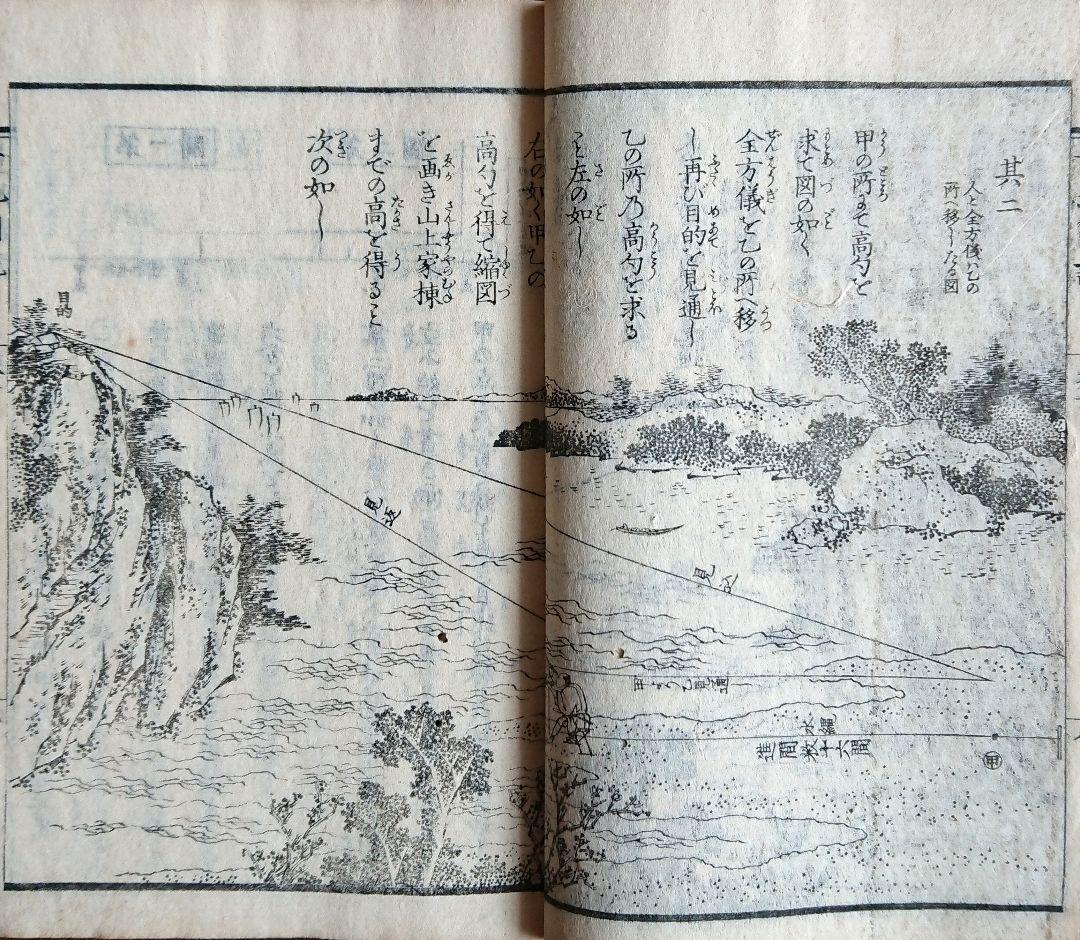 其二
人と全方儀と乙の
所へ移したる図
甲の所にて高勾を
求て図の如く
全方儀を乙の所へ移
し再び目的を見通し
乙の所乃高勾を求る
こと左の如し
右の如く甲乙の
高勾を得て縮図
を画き山上家棟
までの高を得ること
次の如し
目的
見込
見込
甲より乙見通
水縄
進間数十六間
甲